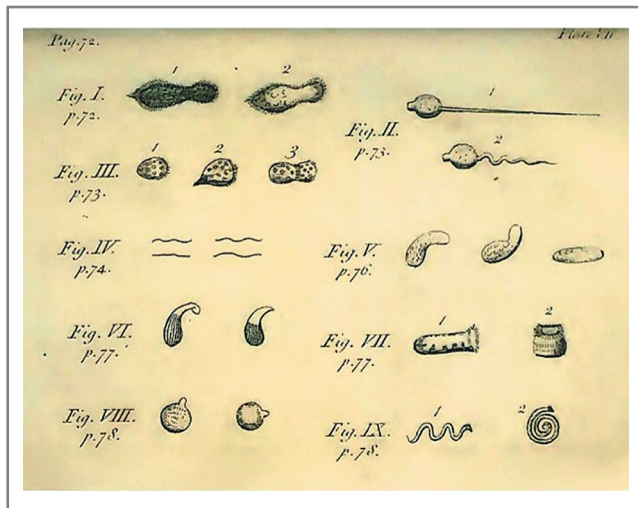 Pag. 72. Plate VII
1 2
Fig. I.
p. 72.
1
Fig. II.
p. 73.
2
1 2 3
Fig. III.
p. 73.
Fig. IV.
p. 74.
Fig. V.
p. 76.
Fig. VI.
p. 77.
1 2
Fig. VII.
p. 77.
Fig. VIII.
p. 78.
1 2
Fig. IX.
p. 78.